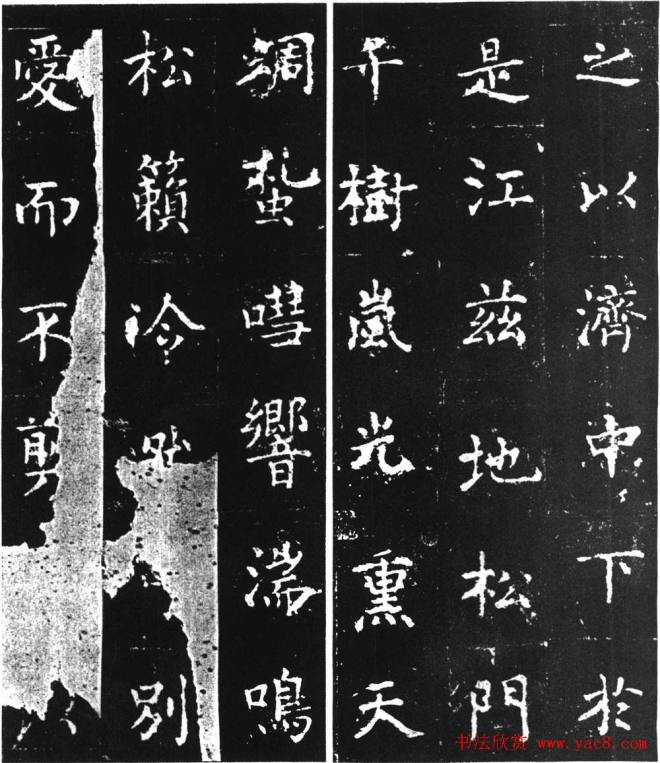 之以濟中下於
是江茲地松門
樹嵐光熏天
蜩嘒響湍鳴
松籟泠別
愛而不剪
书法欣赏 www.yac8.com